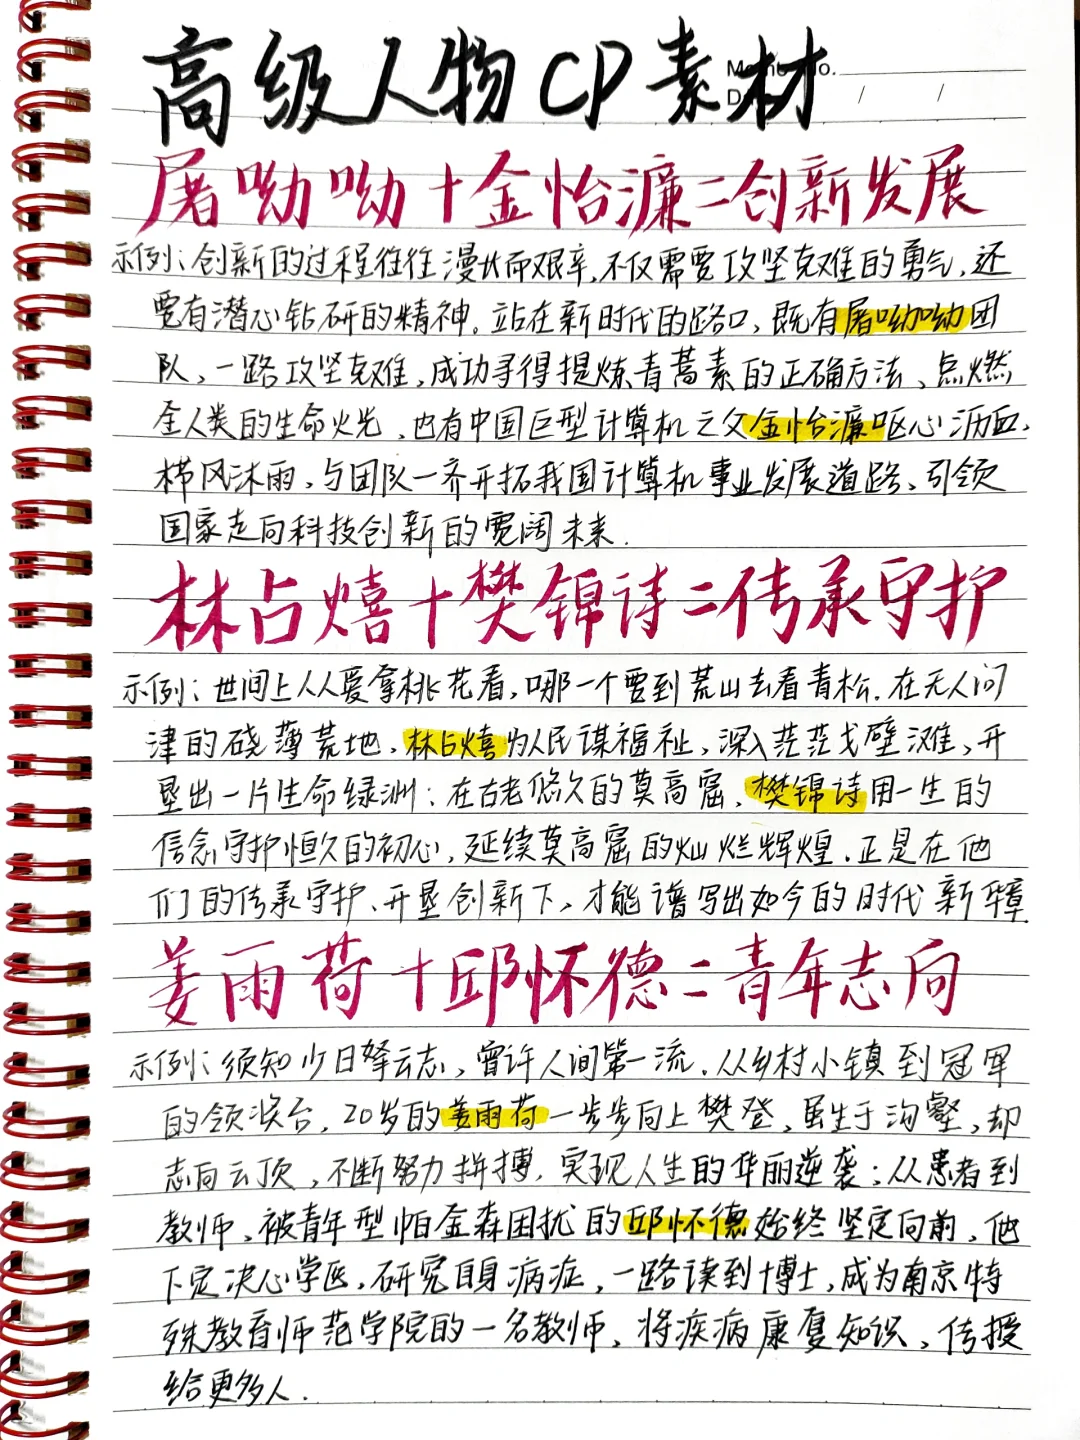 高级人物CP素材
Memo No.
D / /
屠呦呦+金怡濂=创新发展
示例:创新的过程往往漫长而艰辛,不仅需要攻坚克难的勇气,还
要有潜心钻研的精神。站在新时代的路口,既有屠呦呦团
队,一路攻坚克难,成功寻得提炼青蒿素的正确方法、点燃
全人类的生命火光,也有中国巨型计算机之父金怡濂呕心沥血,
栉风沐雨,与团队一齐开拓我国计算机事业发展道路、引领
国家走向科技创新的宽阔未来.
林占熺+樊锦诗=传承守护
示例:世间上人人爱拿桃花看,哪一个要到荒山去看青松.在无人问
津的硗薄荒地,林占熺为人民谋福祉,深入茫茫戈壁滩,开
垦出一片生命绿洲;在古老悠久的莫高窟,樊锦诗用一生的
信念守护恒久的初心,延续莫高窟的灿烂辉煌.正是在他
们的传承守护、开垦创新下,才能谱写出如今的时代新篇章
姜雨荷+邱怀德=青年志向
示例:须知少日拏云志,曾许人间第一流.从乡村小镇到冠军
的领奖台,20岁的姜雨荷一步步向上攀登,虽生于沟壑,却
志向云顶,不断努力拼搏,实现人生的华丽逆袭;从患者到
教师,被青年型帕金森困扰的邱怀德始终坚定向前,他
下定决心学医,研究自身病症,一路读到博士,成为南京特
殊教育师范学院的一名教师,将疾病康复知识,传授
给更多人.